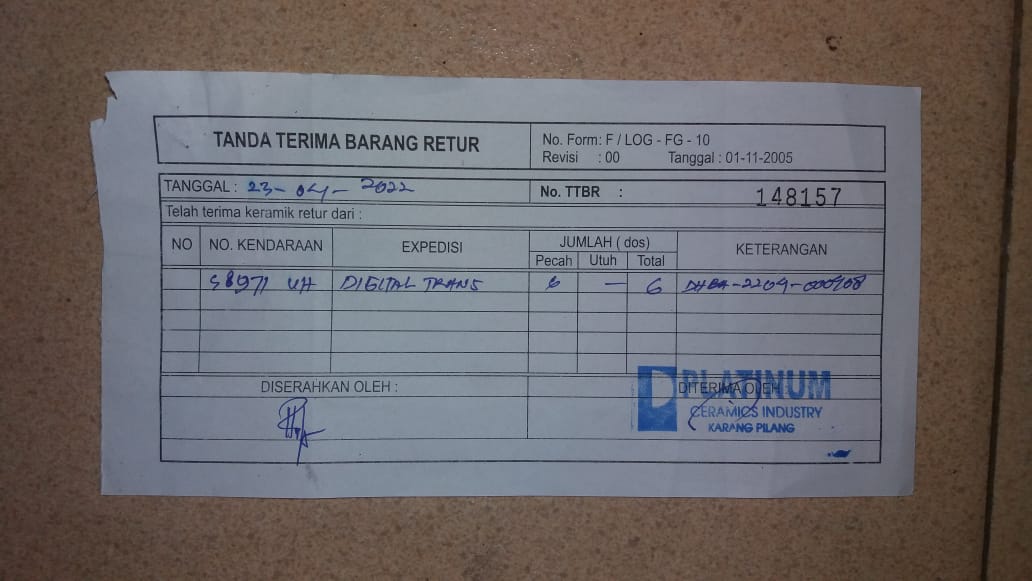 TANDA TERIMA BARANG RETUR
No. Form: F / LOG - FG - 10
Revisi : 00 Tanggal : 01-11-2005
TANGGAL : 23-04-2022
No. TTBR : 148157
Telah terima keramik retur dari :
NO NO. KENDARAAN EXPEDISI JUMLAH ( dos) KETERANGAN
Pecah Utuh Total
DIGITAL TRANS 6 — 6
DISERAHKAN OLEH : DITERIMA OLEH :
PLATINUM
CERAMICS INDUSTRY
KARANG PILANG